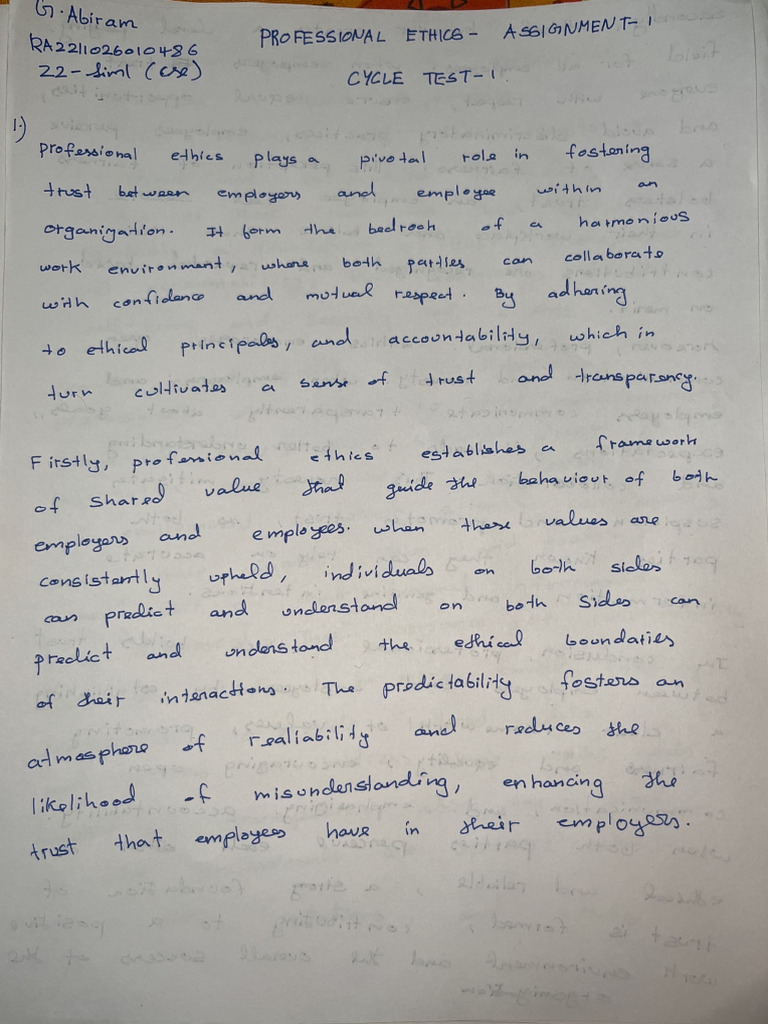 G. Abiram
RA2211026010486
Z2 - Aiml (CSE)
PROFESSIONAL ETHICS - ASSIGNMENT-1
CYCLE TEST-1.
1.)
professional ethics plays a pivotal role in fostering
trust between employers and employee within an
organization. It form the bedrock of a harmonious
work environment, where both parties can collaborate
with confidence and mutual respect. By adhering
to ethical principales, and accountability, which in
turn cultivates a sense of trust and transparency.
Firstly, professional ethics establishes a framework
of shared value that guide the behaviour of both
employers and employees. when these values are
consistently upheld, individuals on both sides
can predict and understand on both sides can
predict and understand the ethical boundaries
of their interactions. The predictability fosters an
atmosphere of realiability and reduces the
likelihood of misunderstanding, enhancing the
trust that employees have in their employers.